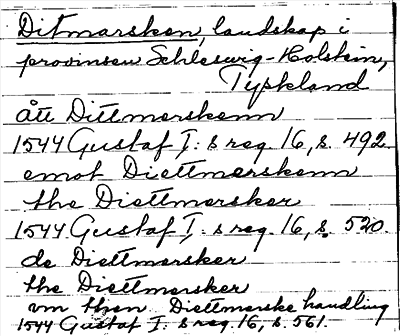 Ditmarsken, landskap i
provinsen Schleswig-Holstein,
Tyskland
ått Dittmerskenn
1544 Gustaf I: s reg. 16, s. 492
emot Diettmerskenn
the Diettmersker
1544 Gustaf I: s reg. 16, s. 520.
de Diettmersker
the Diettmersker
vm then Diettmerske handling
1544 Gustaf I: s reg. 16, s. 561.